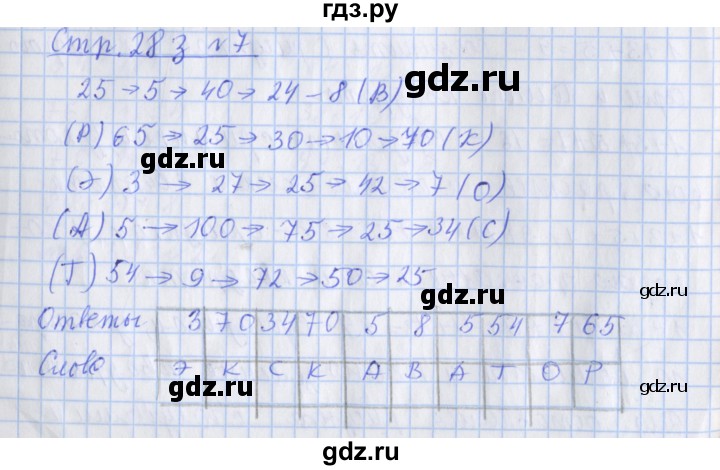 гдз.ру
Стр. 28 з №7
25 → 5 → 40 → 24 – 8 (В)
gdz.ru
(Р) 65 → 25 → 30 → 10 → 70 (К)
gdz.ru
(Э) 3 → 27 → 25 → 42 → 7 (О)
gdz.ru
(А) 5 → 100 → 75 → 25 → 34 (С)
(Т) 54 → 9 → 72 → 50 → 25
gdz.ru
Ответы 3 70 34 70 5 8 5 54 7 65
Слово Э К С К А В А Т О Р
gdz.ru
gdz.ru
gdz.ru